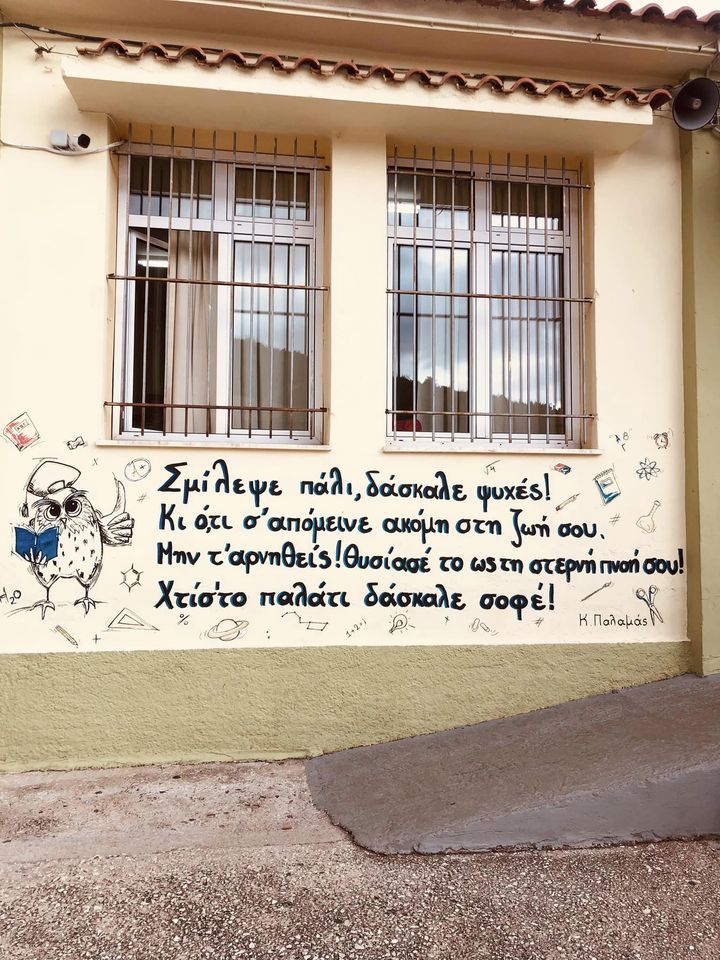 Σμίλεψε πάλι, δάσκαλε ψυχές!
Κι ό,τι σ'απόμεινε ακόμη στη ζωή σου.
Μην τ'αρνηθείς! θυσίασέ το ως τη στερνή πνοή σου!
Χτίσ'το παλάτι δάσκαλε σοφέ!
Κ. Παλαμάς
H₂O
%
1+2=1
√4
Α Β
Γ